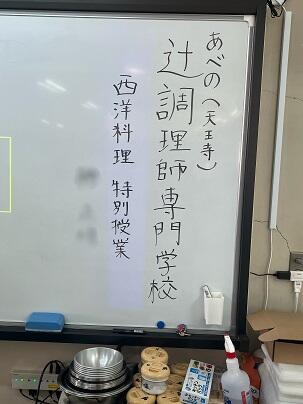 あべの(天王寺)
辻調理師専門学校
西洋料理 特別授業